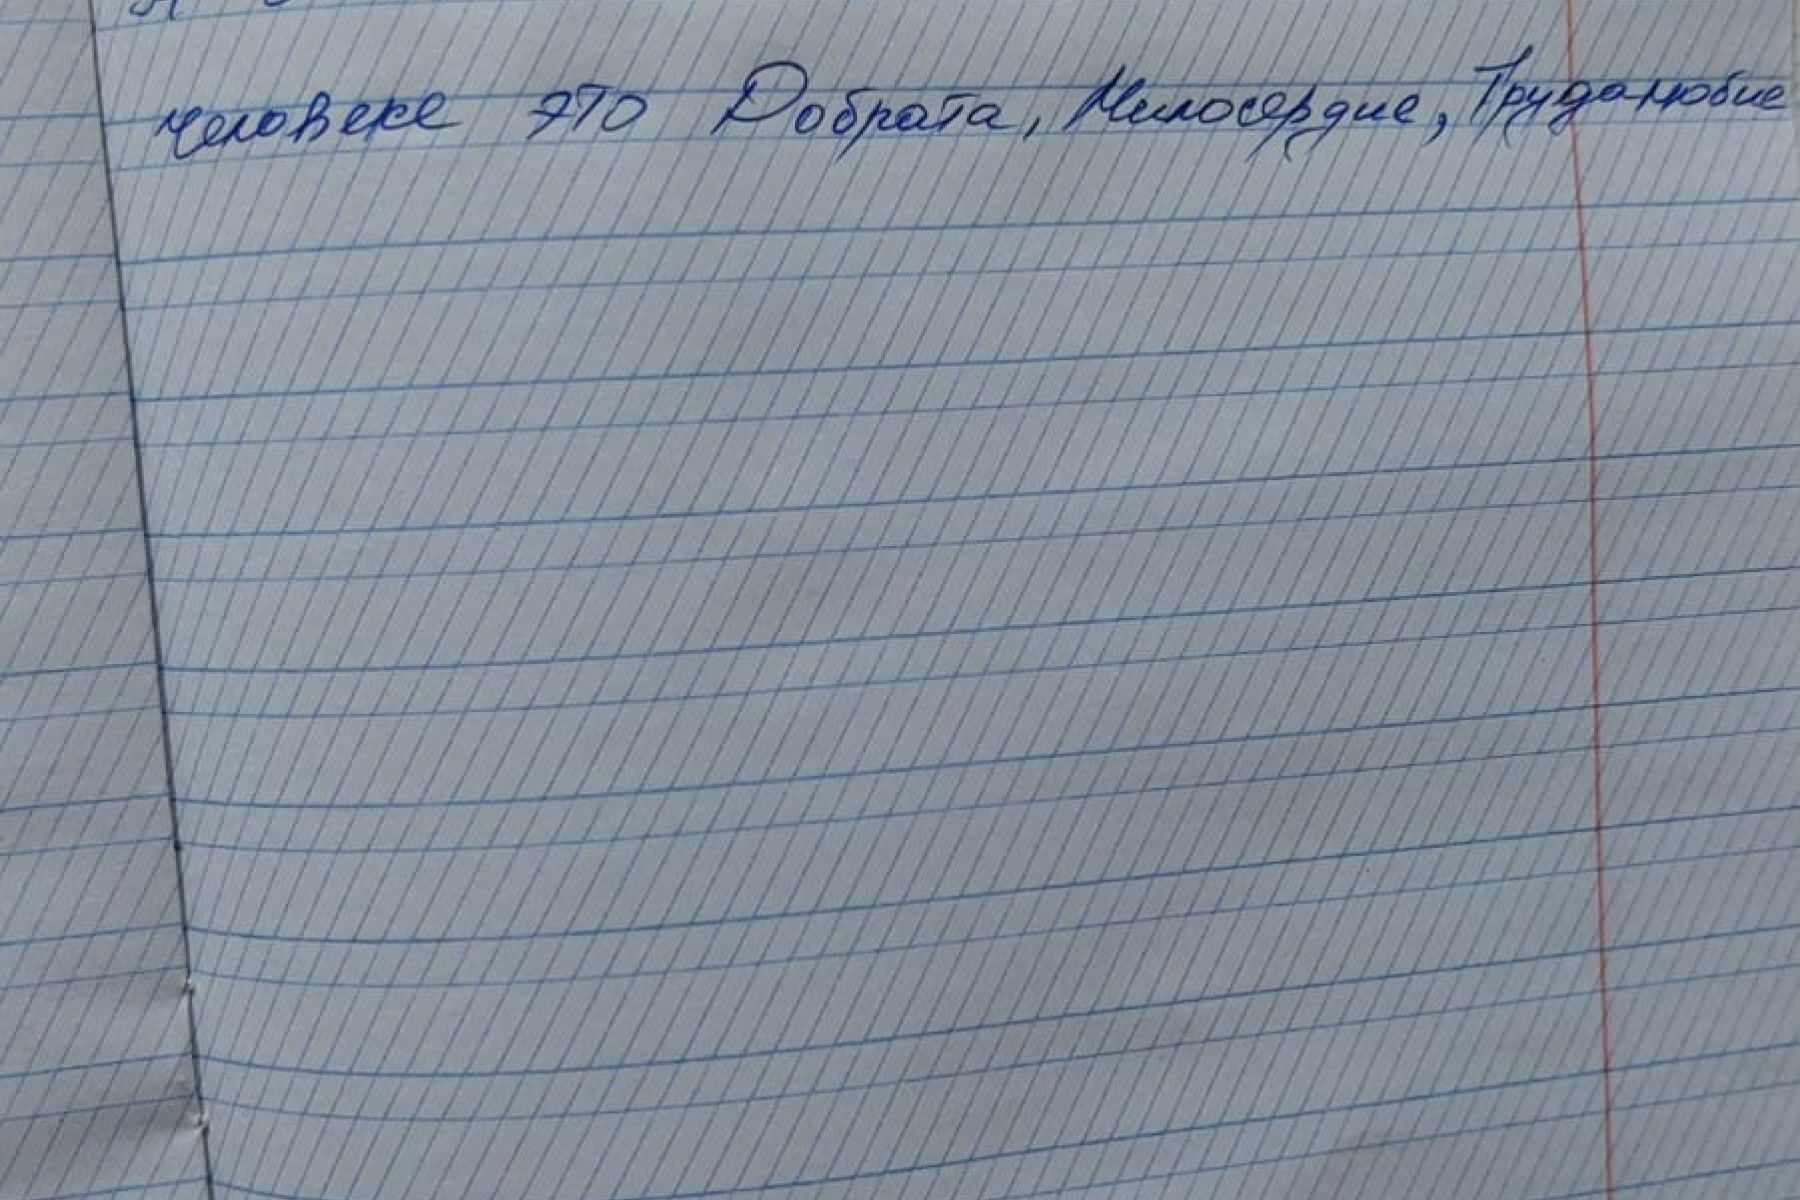 человеке это Добрата, Милосердие, Трудалюбие